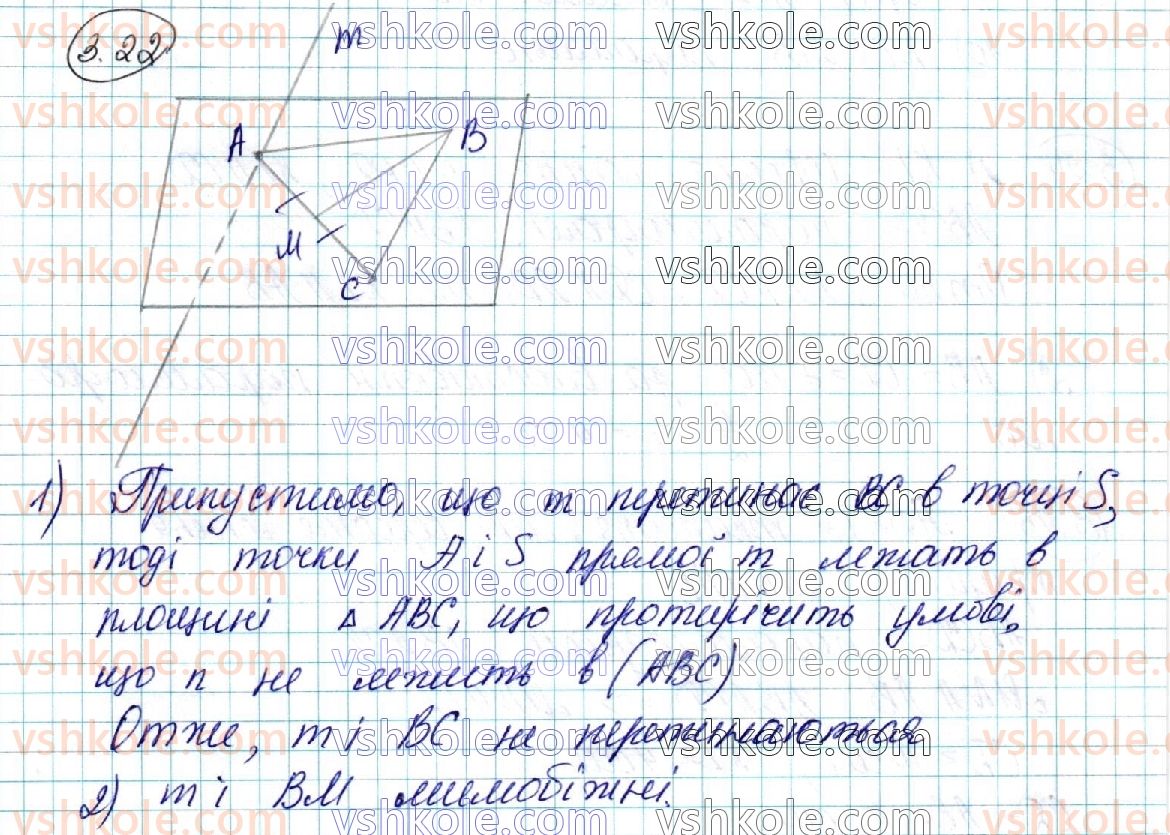 3.22
m
A
B
M
C
1) Припустимо, що m перетинає BC в точці S,
тоді точки A і S прямої m лежать в
площині △ ABC, що протирічить умові,
що n не лежить в (ABC)
Отже, m і BC не перетинаються
2) m і BM мимобіжні.
vshkole.com